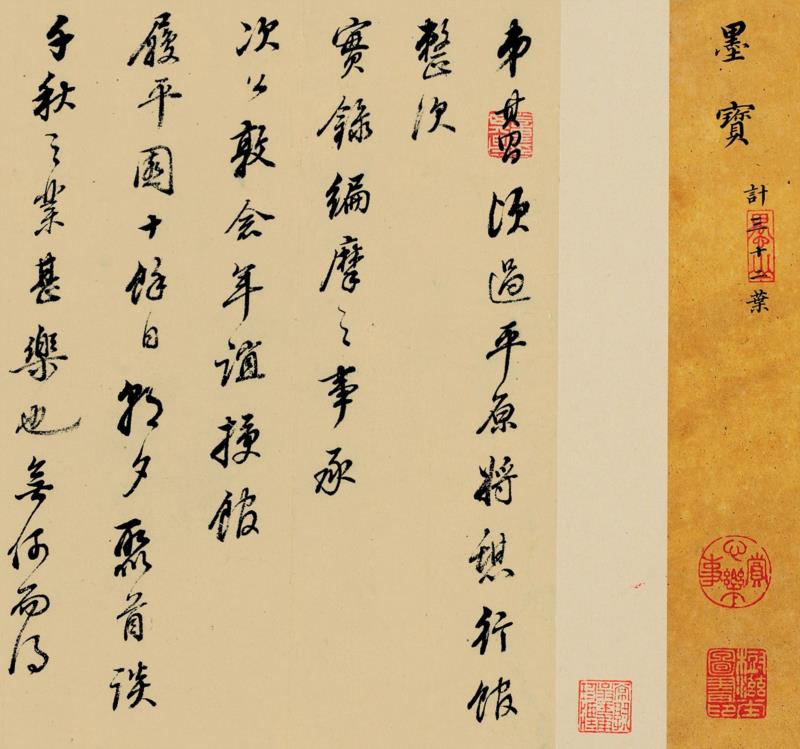 墨寶
計三十二葉
弟其昌頃過平原將憩行館
整次
實錄編摩之事承
次公敦念年誼授館
履平園十餘日朝夕聚首談
千秋之業甚樂也無何而得
賞心樂事